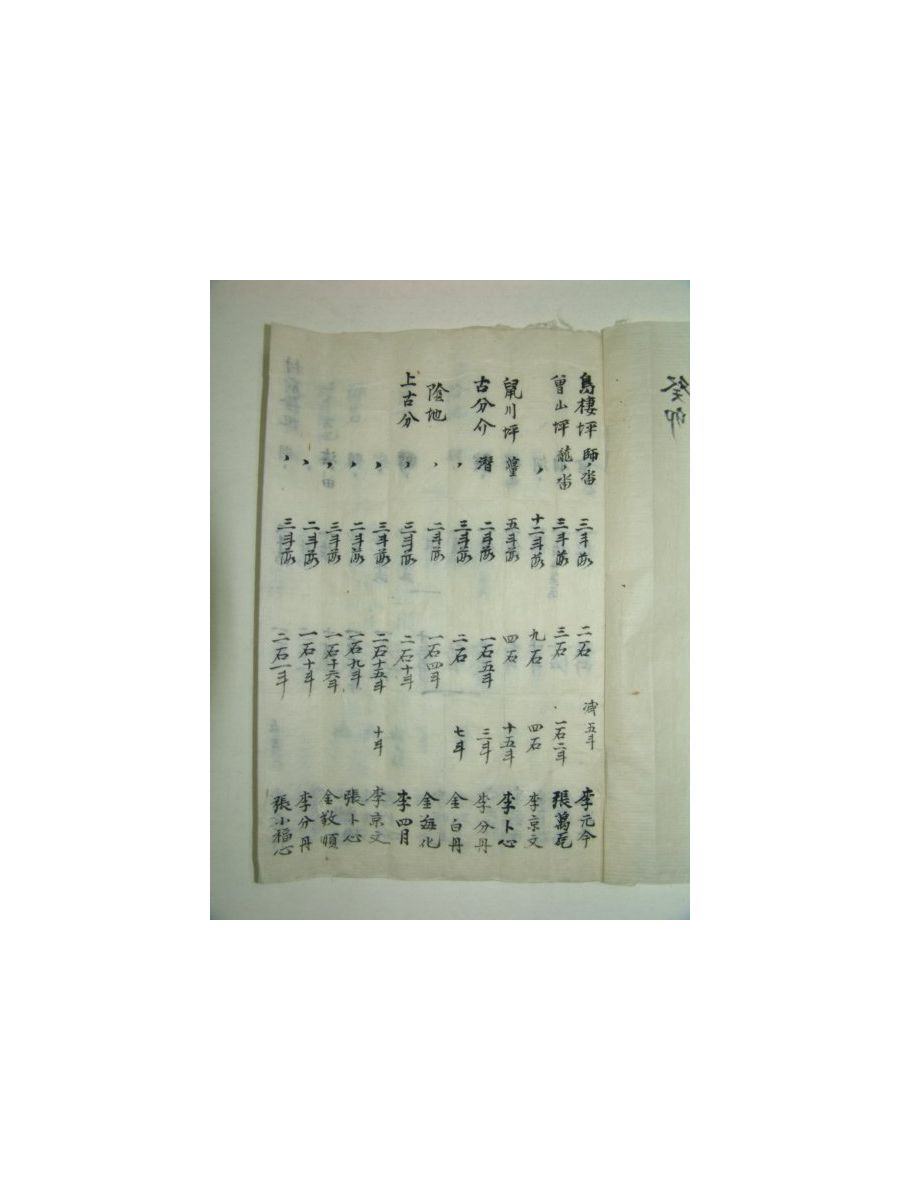 癸卯
鳥棲坪 師、畓 三斗落 二石 减五斗 李元今
曾山坪 龍、畓 三斗落 三石 一石二斗 張萬
、 十二斗落 九石 四石 李京文
鼠川坪 五斗落 四石 十五斗 李卜心
古分介 潜 二斗落 一石五斗 三斗 李分丹
、 三斗落 二石 七斗 金白丹
陰地 、 二斗落 一石四斗 金化
上古分 、 三斗落 二石十斗 李四月
、 三斗落 二石十五斗 十斗 李京文
、 二斗落 一石九斗 張卜心
、 三斗落 一石十六斗 金敦順
、 二斗落 一石十斗 李分丹
、 三斗落 二石一斗 張小福心